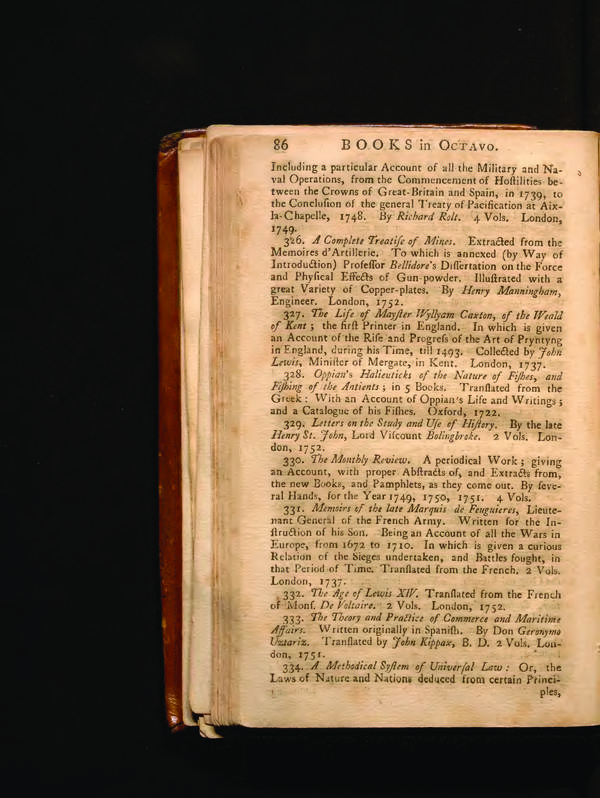 86 BOOKS in OCTAVO.
Including a particular Account of all the Military and Na-
val Operations, from the Commencement of Hoſtilities be-
tween the Crowns of Great-Britain and Spain, in 1739, to
the Concluſion of the general Treaty of Pacification at Aix-
la-Chapelle, 1748. By Richard Rolt. 4 Vols. London,
1749.
326. A Complete Treatiſe of Mines. Extracted from the
Memoires d'Artillerie. To which is annexed (by Way of
Introduction) Profeſſor Bellidore's Diſſertation on the Force
and Phyſical Effects of Gun-powder. Illuſtrated with a
great Variety of Copper-plates. By Henry Manningham,
Engineer. London, 1752.
327. The Life of Mayſter Wyllyam Caxton, of the Weald
of Kent; the firſt Printer in England. In which is given
an Account of the Riſe and Progreſs of the Art of Pryntyng
in England, during his Time, till 1493. Collected by John
Lewis, Miniſter of Mergate, in Kent. London, 1737.
328. Oppian's Halieuticks of the Nature of Fiſhes, and
Fiſhing of the Antients; in 5 Books. Tranſlated from the
Greek: With an Account of Oppian's Life and Writings;
and a Catalogue of his Fiſhes. Oxford, 1722.
329. Letters on the Study and Uſe of Hiſtory. By the late
Henry St. John, Lord Viſcount Bolingbroke. 2 Vols. Lon-
don, 1752.
330. The Monthly Review. A periodical Work; giving
an Account, with proper Abſtracts of, and Extracts from,
the new Books, and Pamphlets, as they come out. By ſeve-
ral Hands, for the Year 1749, 1750, 1751. 4 Vols.
331. Memoirs of the late Marquis de Feuguieres, Lieute-
nant General of the French Army. Written for the In-
ſtruction of his Son. Being an Account of all the Wars in
Europe, from 1672 to 1710. In which is given a curious
Relation of the Sieges undertaken, and Battles fought, in
that Period of Time. Tranſlated from the French. 2 Vols.
London, 1737.
332. The Age of Lewis XIV. Tranſlated from the French
of Monſ. De Voltaire. 2 Vols. London, 1752.
333. The Theory and Practice of Commerce and Maritime
Affairs. Written originally in Spaniſh. By Don Geronymo
Uztariz. Tranſlated by John Kippax, B. D. 2 Vols. Lon-
don, 1751.
334. A Methodical Syſtem of Univerſal Law: Or, the
Laws of Nature and Nations deduced from certain Princi-
ples,